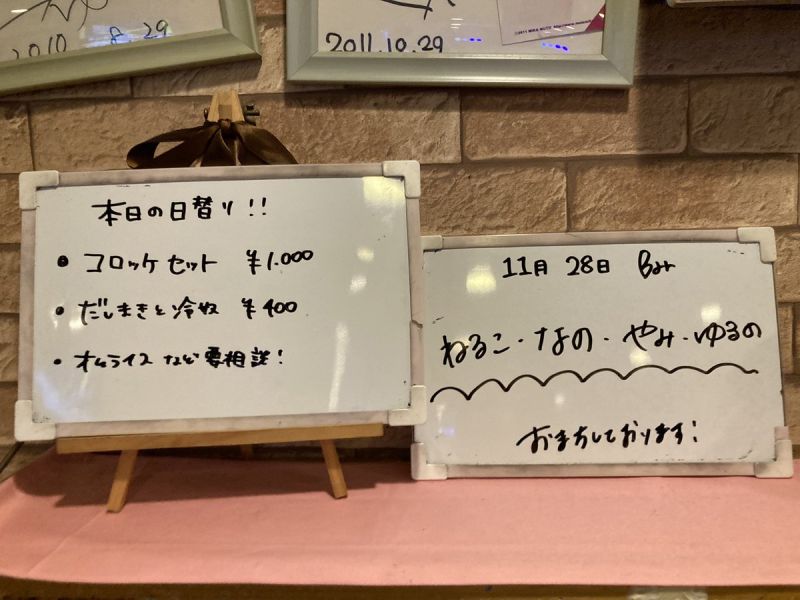 2010 8 29
2011.10.29
本日の日替り!!
• コロッケセット ¥1.000
• だしまきと冷奴 ¥400
• オムライスなど要相談!
11月 28日 Bar
ねるこ・なの・やみ・ゆるの
おまちしております!